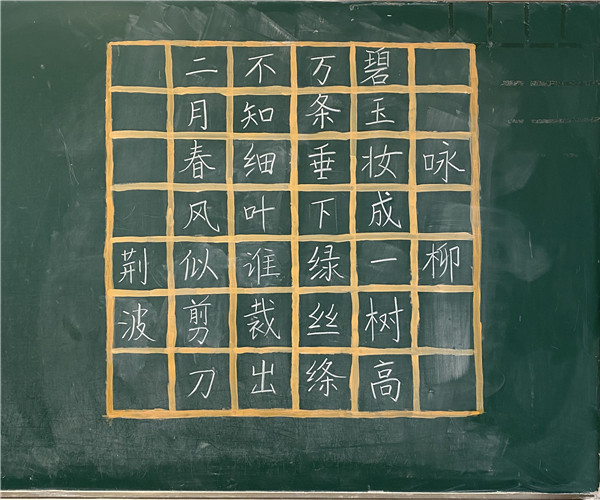 咏柳
碧玉妆成一树高
万条垂下绿丝绦
不知细叶谁裁出
二月春风似剪刀
荆波